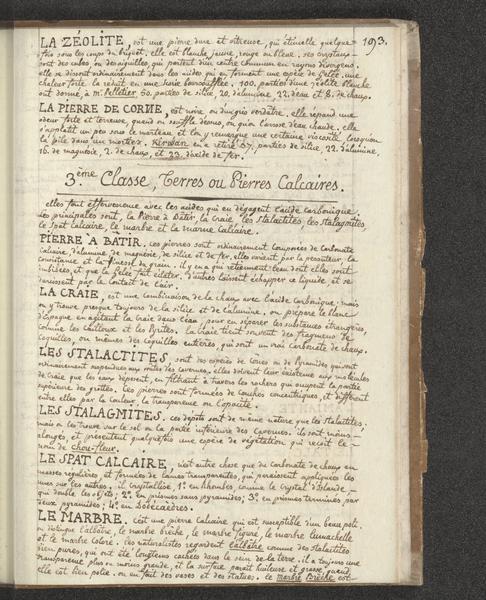 193.
LA ZÉOLITE, est une pierre dure et vitreuse, qui étincelle quelque=
fois sous les coups du briquet. elle est blanche, jaune, rouge ou bleue. ses crystaux
sont des cubes, ou des aiguilles, qui partent d'un centre commun en rayons divergens.
elle se dissout ordinairement dans les acides qui en forment une espèce de gelée. une
chaleur forte la réduit en une scorie boursoufflée. 100. parties d'une zéolite blanche
ont donné, à mr. Pelletier 50. parties de silice, 20. d'alumine, 22. d'eau et 8. de chaux.
LA PIERRE DE CORNE, est noire ou d'un gris verdâtre. elle répand une
odeur forte et terreuse, quand on souffle dessus, ou qu'on l'arrose d'eau chaude. elle
s'applatit un peu sous le marteau et l'on y remarque une certaine viscosité, lorsqu'on
la pile dans un mortier. Kirwan en a retiré 37. parties de silice, 22. d'alumine,
16. de magnésie, 2. de chaux, et 23. d'oxide de fer.
3.ème Classe, Terres ou Pierres Calcaires.
elles font effervescence avec les acides qui en dégagent l'acide carbonique.
Les principales sont, la Pierre à Bâtir, la Craie, les Stalactites, les Stalagmites,
le Spat calcaire, le marbre et la marne calcaire.
PIERRE A BATIR. ces pierres sont ordinairement composées de carbonate
calcaire, d'alumine, de magnésie, de silice et de fer. elles varient par la pesanteur, la
consistance et la finesse du grain. il y en a qui retiennent l'eau dont elles sont
imbibées, et que la Gelée fait éclater. d'autres laissent échapper ce liquide, et se
durcissent par le contact de l'air.
LA CRAIE, est une combinaison de la chaux avec l'acide carbonique; mais
on y trouve presque toujours de la silice et de l'alumine. on prépare le blanc
d'Espagne en agitant la craie dans l'eau, pour en séparer les substances étrangères,
comme les cailloux et les Pyrites. la craie tient souvent des fragmens de
coquilles, ou mêmes des coquilles entières, qui sont un vrai carbonate de chaux.
LES STALACTITES, sont des espèces de Cones ou de Pyramides qui sont
ordinairement suspendues aux voûtes des cavernes. elles doivent leur existence aux molécules
de craie que les eaux déposent, en filtrant à travers les rochers qui occupent la partie
supérieure des grottes. ces pierres sont formées de couches concentriques, et diffèrent
entre elles par la couleur, la transparence ou l'opacité.
LES STALAGMITES. ces dépôts sont de même nature que les stalactites,
mais on les trouve sur le sol ou la partie inférieure des cavernes. ils sont moins
alongés, et présentent quelquefois une espèce de végétation qui reçoit le
nom de Chou-fleur.
LE SPAT CALCAIRE, n'est autre chose que du carbonate de chaux en
masses régulières et formées de lames transparentes, qui paraissent appliquées les
unes sur les autres. il crystallise, 1.° en rhombes comme le crystal d'islande,
qui double les objets; 2.° en prismes sans pyramides; 3.° en prismes terminés par
deux pyramides; 4.° en Dodécaèdres.
LE MARBRE. c'est une pierre calcaire qui est susceptible d'un beau poli.
on distingue l'albâtre, le marbre brèche, le marbre figuré, le marbre lumachelle
et le marbre coloré. les naturalistes regardent l'albâtre comme des stalactites
bien pures, qui ont été longtems cachées dans le sein de la terre. il a toujours une
transparence plus ou moins grande, et sa surface paraît huileuse et grasse, quand
elle est bien polie. on en fait des vases et des statues. le marbre Brèche est=